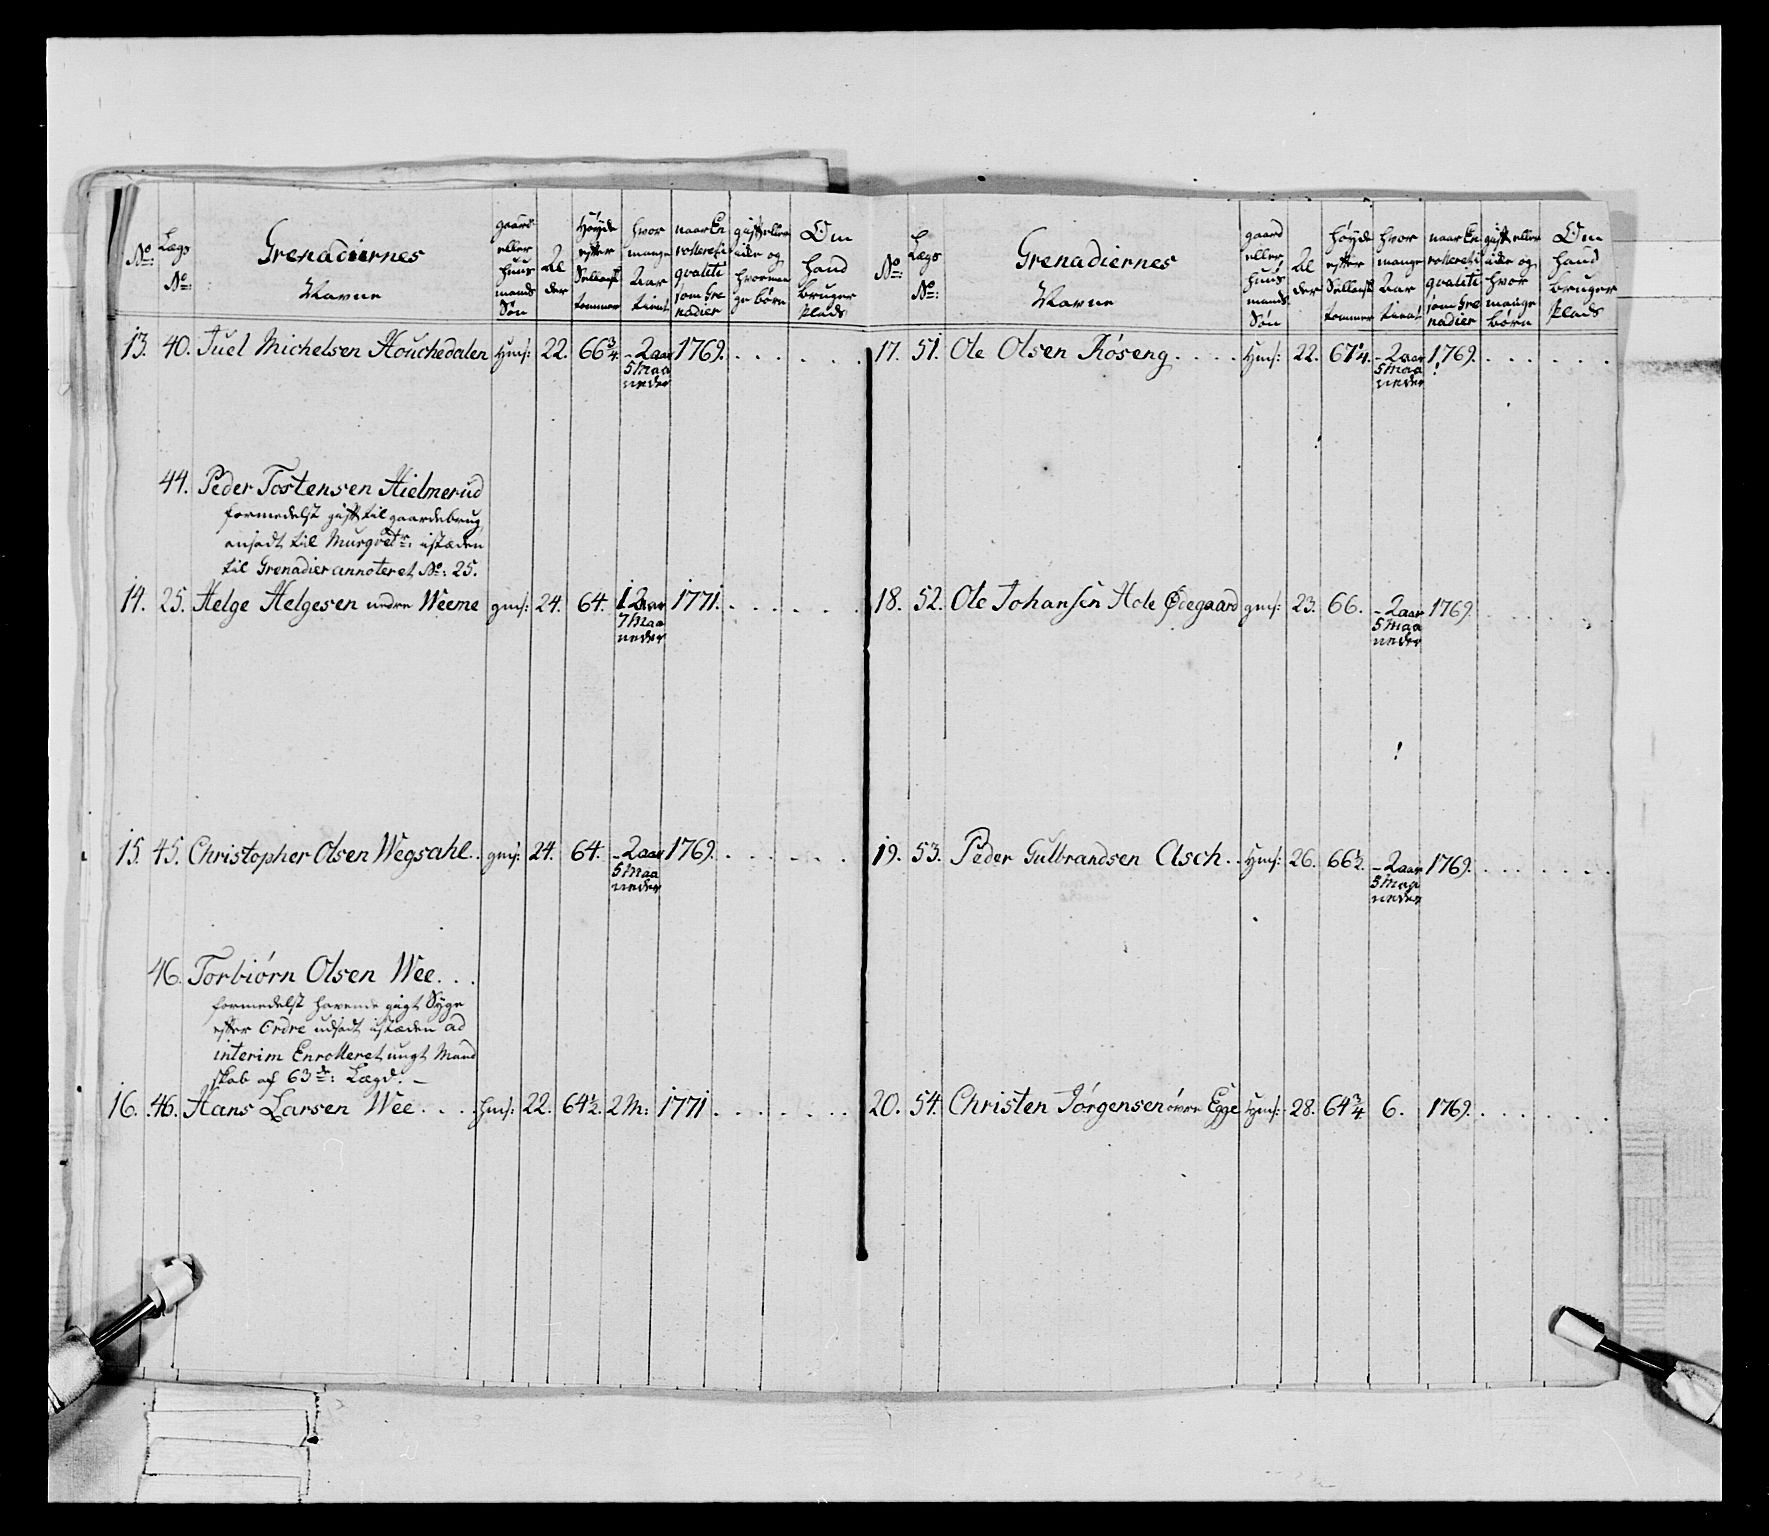 No:
Lægs No:
Grenadiernes Navne
gaard eller huus mands Søn
Al der
Høyde efter Sellandsk tommer
hvor mange Aar tient
naar En rolleret i qvaliti som Gre nadier
gift eller eide og hvorman ge børn
Om hand bruger plads
13. 40. Juel Michelsen Houchedalen Hmf: 22. 66 3/4 - 2 aar 1769. . . . . . .
5 Maa
neder
44. Peder Tostensen Hielmerud
formedelst gift til gaardebrug
ansadt til Musqvetr: istæden
til Grenadier annoteret No: 25.
14. 25. Helge Helgesen nedre Weeme gmf: 24. 64. 1 2aar 1771. . . . . . .
7 Maa
neder
15. 45. Christopher Olsen Wegsahl. . gmf: 24. 64. - 2 aar 1769. . . . . . .
5 Maa
neder
46. Torbiørn Olsen Wee. . .
formedelst havende gigt Syge
efter Ordre udsadt istæden ad
interim Enrolleret ungt Mand
skab af 63de: Lægd. -
16. 46. Hans Larsen Wee . . . . hmf: 22. 64 1/2. 2 M: 1771. . . . . . .
No:
Lægs No:
Grenadiernes Navne
gaard eller huus mands Søn
Al der
høyde efter Sellandsk tommer
hvor mange Aar tient
naar En rolleret i qvaliti som Gre nadier
gift eller eide og hvor mange børn
Om hand bruger plads
17. 51. Ole Olsen Røseng. . . . Hmf: 22. 67 1/4. - 2 aar 1769. . . . . . .
5 Maa
neder
18. 52. Ole Johansen Hole Ødegaard gmf: 23. 66. - 2 aar 1769. . . . . .
5 Maa
neder
19. 53. Peder Gulbrandsen Asch. . Hmf: 26. 66 1/2. - 2 aar 1769. . . . . . .
5 Maa
neder
20. 54. Christen Jørgensen øvre Egge Hmf: 28. 64 3/4. 6. 1769. . . . . . .